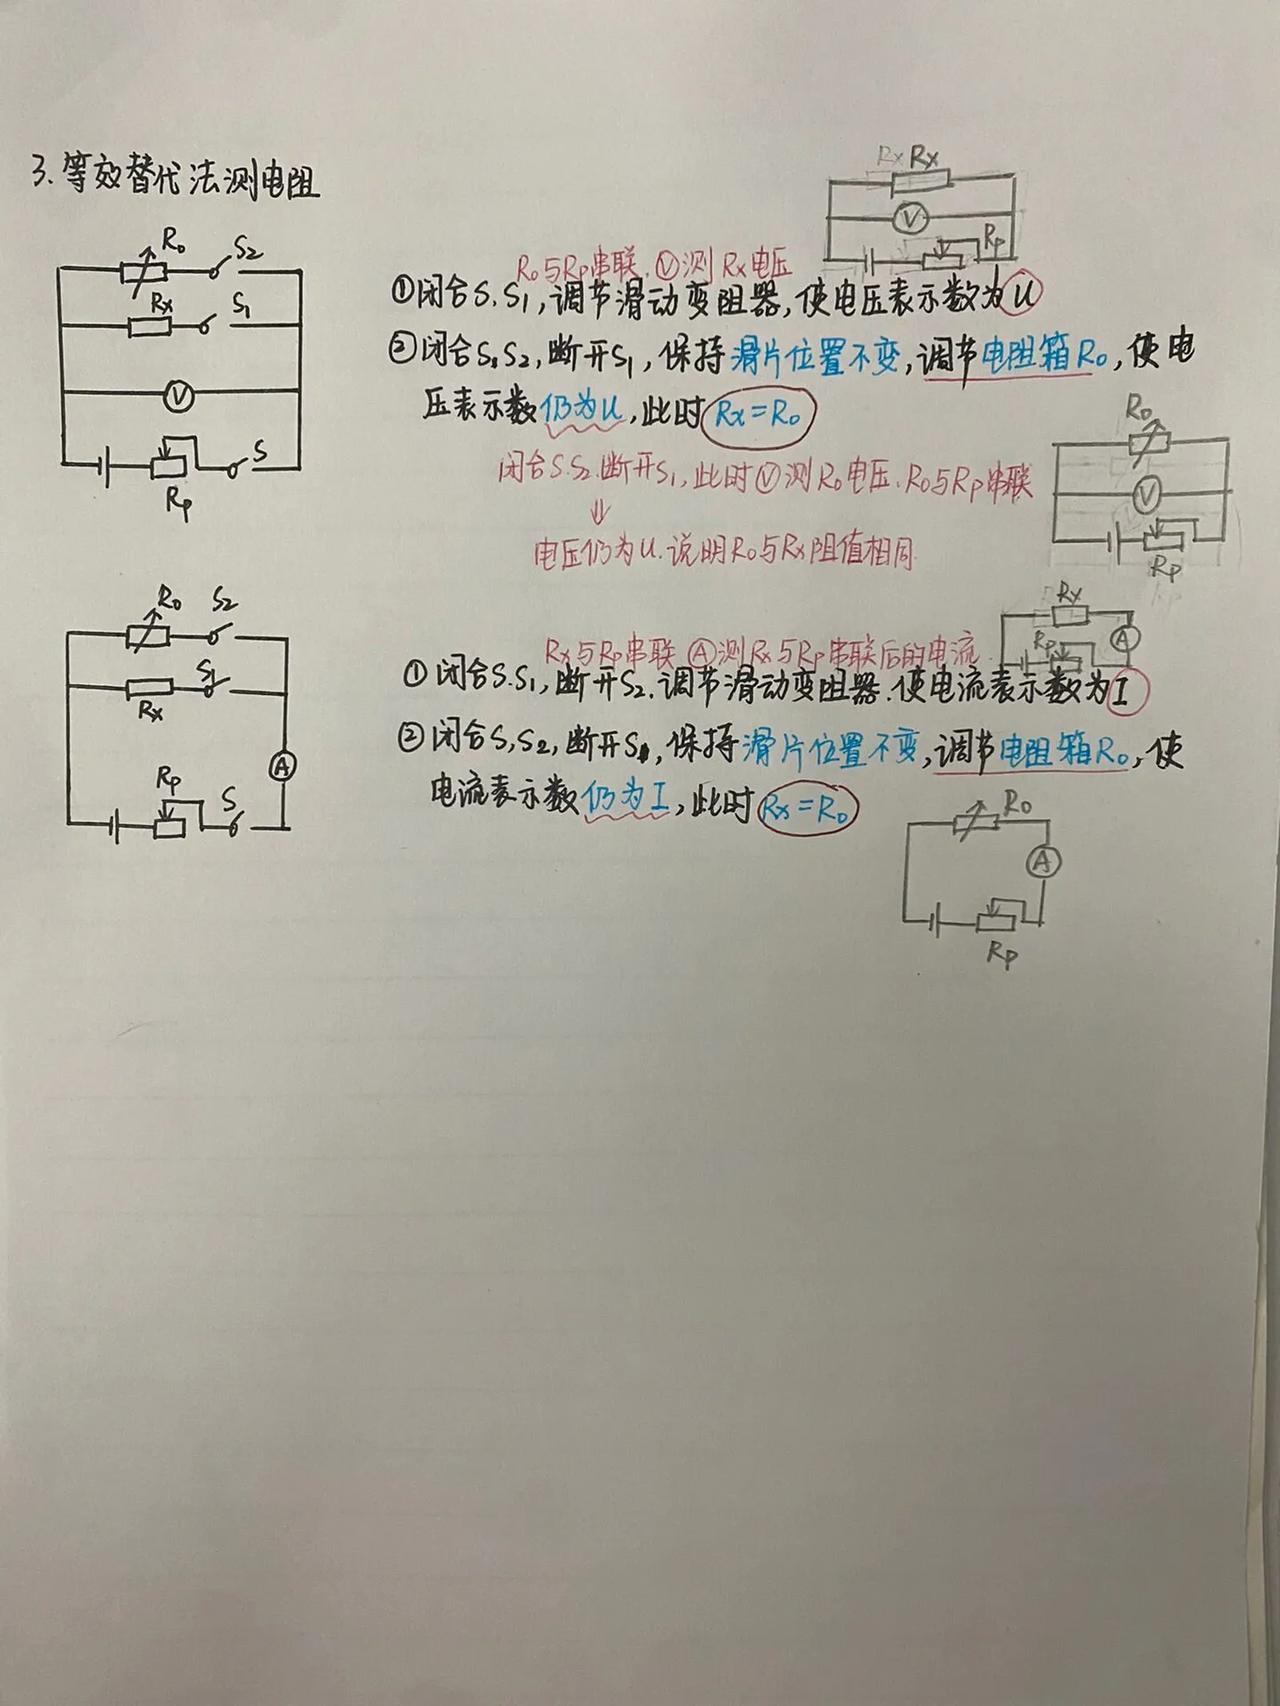 3.等效替代法测电阻
Rx Rx
V
Rp
R₀ S₂
Rx S₁
V
S
Rp
R₀与Rp串联.Ⓥ测Rx电压
①闭合S.S₁,调节滑动变阻器,使电压表示数为U
②闭合S,S₂,断开S₁,保持滑片位置不变,调节电阻箱R₀,使电
压表示数仍为U,此时Rx=R₀
闭合S.S₂.断开S₁,此时Ⓥ测R₀电压.R₀与Rp串联
⇓
电压仍为U.说明R₀与Rx阻值相同.
R₀
V
Rp
R₀ S₂
S₁
Rx
A
Rp S
Rx
A
Rp
Rx与Rp串联 Ⓐ测Rx与Rp串联后的电流
①闭合S.S₁,断开S₂.调节滑动变阻器.使电流表示数为I
②闭合S,S₂,断开S₁,保持滑片位置不变,调节电阻箱R₀,使
电流表示数仍为I,此时Rx=R₀
R₀
A
Rp